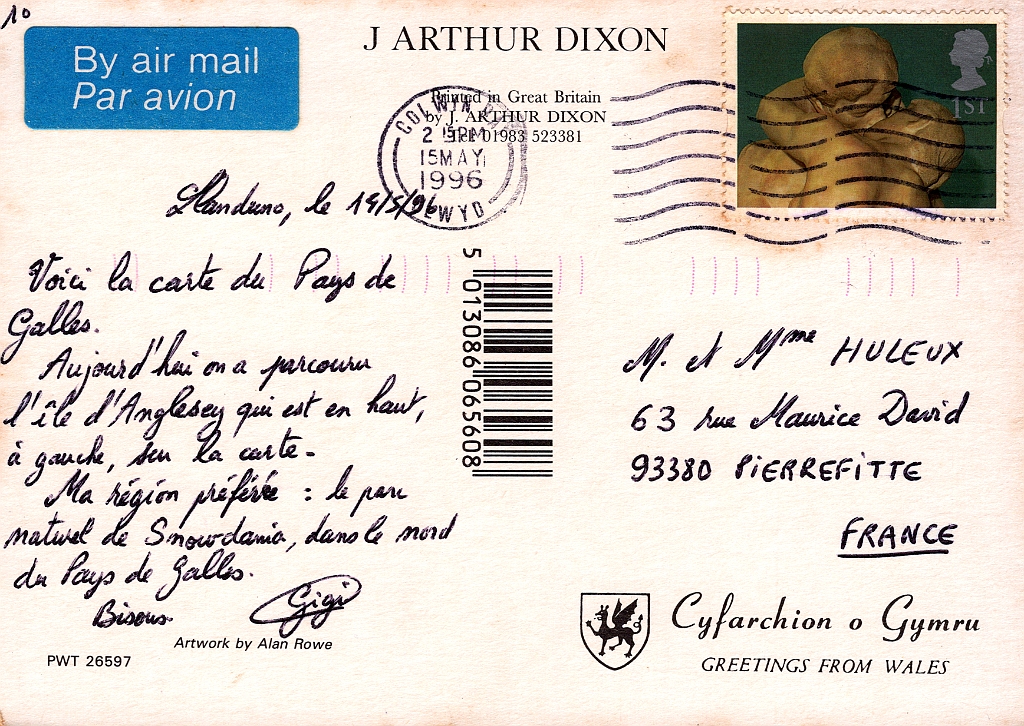 10
By air mail
Par avion
J ARTHUR DIXON
Printed in Great Britain
by J. ARTHUR DIXON
Tel 01983 523381
COLWYN
2 15PM
15MAY
1996
CLWYD
1ST
Llanduno, le 14/5/96
Voici la carte du Pays de
Galles.
Aujourd'hui on a parcouru
l'île d'Anglesey qui est en haut,
à gauche, sur la carte.
Ma région préférée : le parc
naturel de Snowdania, dans le nord
du Pays de Galles.
Bisous.
Gigi
Artwork by Alan Rowe
PWT 26597
5 013086 065608
M. et Mme HULEUX
63 rue Maurice David
93380 PIERREFITTE
FRANCE
Cyfarchion o Gymru
GREETINGS FROM WALES